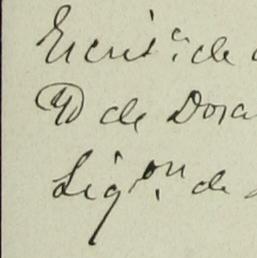 Escrit.ª de
D de Dora
Liq.on de